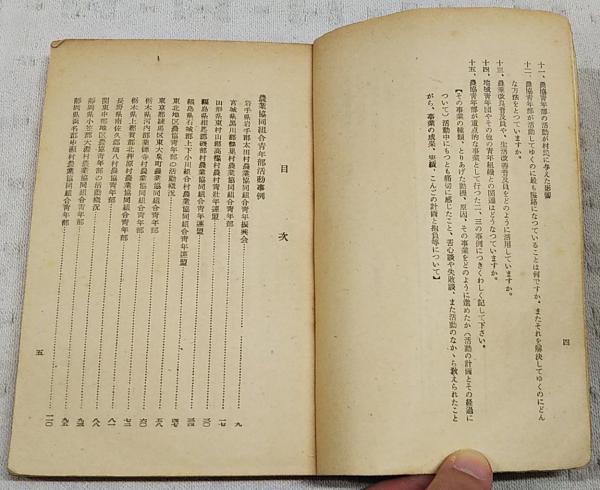 十一、農協青年部の活動が村に与えた影響
十二、農協青年部が活動してゆくのに最も隘路になっていることは何ですか。またそれを解決してゆくのにどん
な方法をとっていますか。
十三、農業改良普及員や、生活改善普及員をどのように活用していますか。
十四、地域青年団やその他の青年組織との関連はどうなっていますか。
十五、農協青年部が重点的な事業として行った二、三の事例につきくわしく記して下さい。
【その事業の種類、とりあげた動機、原因、その事業をどのように進めたか（活動の計画とその経過に
ついて）活動中にもっとも痛切に感じたこと、苦心談や失敗談、また活動のなかから教えられたこと
がら、事業の成果、実績、こんごの計画と抱負等について】
四
目次
農業協同組合青年部活動事例
岩手県岩手郡太田村農業協同組合青年振興会……九
宮城県黒川郡鶴巣村農業協同組合青年部……一七
山形県東村山郡高擶村農村青壮年連盟……二五
福島県相馬郡磯部村農業協同組合青年連盟……三〇
福島県石城郡上下小川組合村農業協同組合青年連盟……三四
東北地区農協青年部の活動概況……四七
東京都練馬区東大泉町農業協同組合青年部……五八
栃木県河内郡薬師寺村農業協同組合青年部……六五
栃木県上都賀郡北押原村農業協同組合青年部……七三
長野県南佐久郡畑八村農協青年部……八一
関東中部地区農協青年部の活動概況……八八
静岡県小笠郡大淵村農業協同組合青年部……九五
静岡県浜名郡中瀬村農業協同組合青年部……一一〇
五